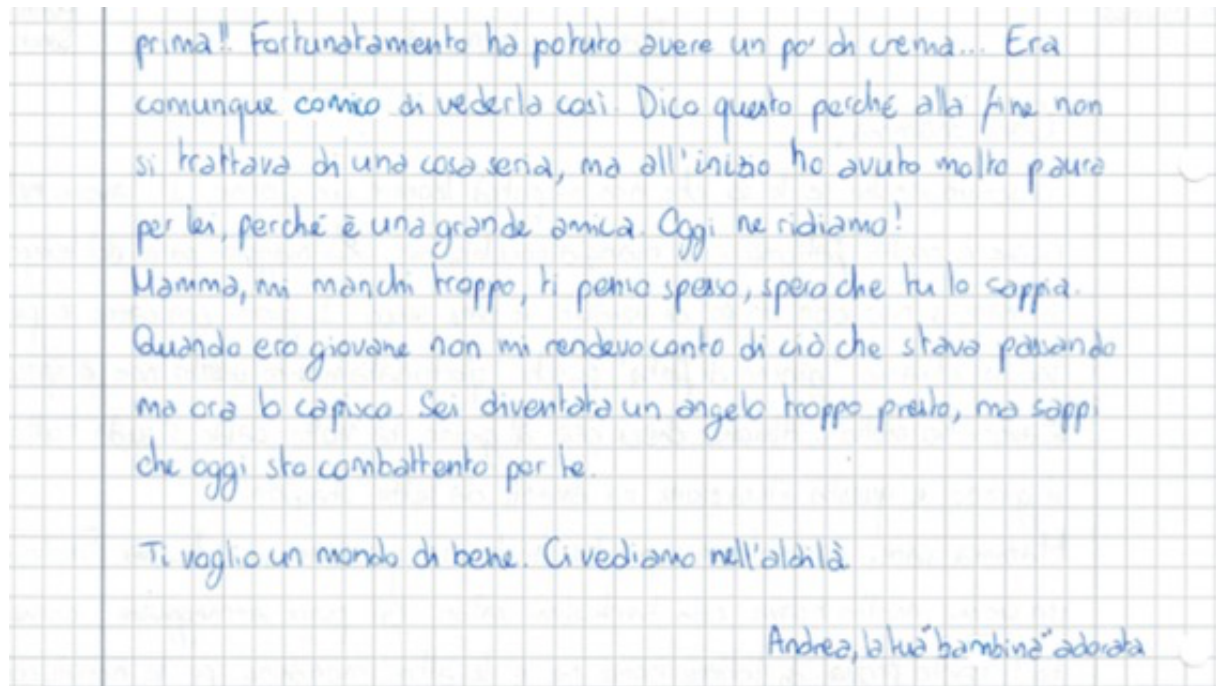 prima!! Fortunatamento ha potuto avere un po' di crema... Era
comunque comico di vederla così. Dico questo perché alla fine non
si trattava di una cosa seria, ma all'inizio ho avuto molto paura
per lei, perché è una grande amica. Oggi ne ridiamo!
Mamma, mi manchi troppo, ti penso spesso, spero che tu lo sappia.
Quando ero giovane non mi rendevo conto di ciò che stava passando
ma ora lo capisco. Sei diventata un angelo troppo presto, ma sappi
che oggi sto combattento per te.
Ti voglio un mondo di bene. Ci vediamo nell'aldilà.
Andrea, la tua "bambina" adorata